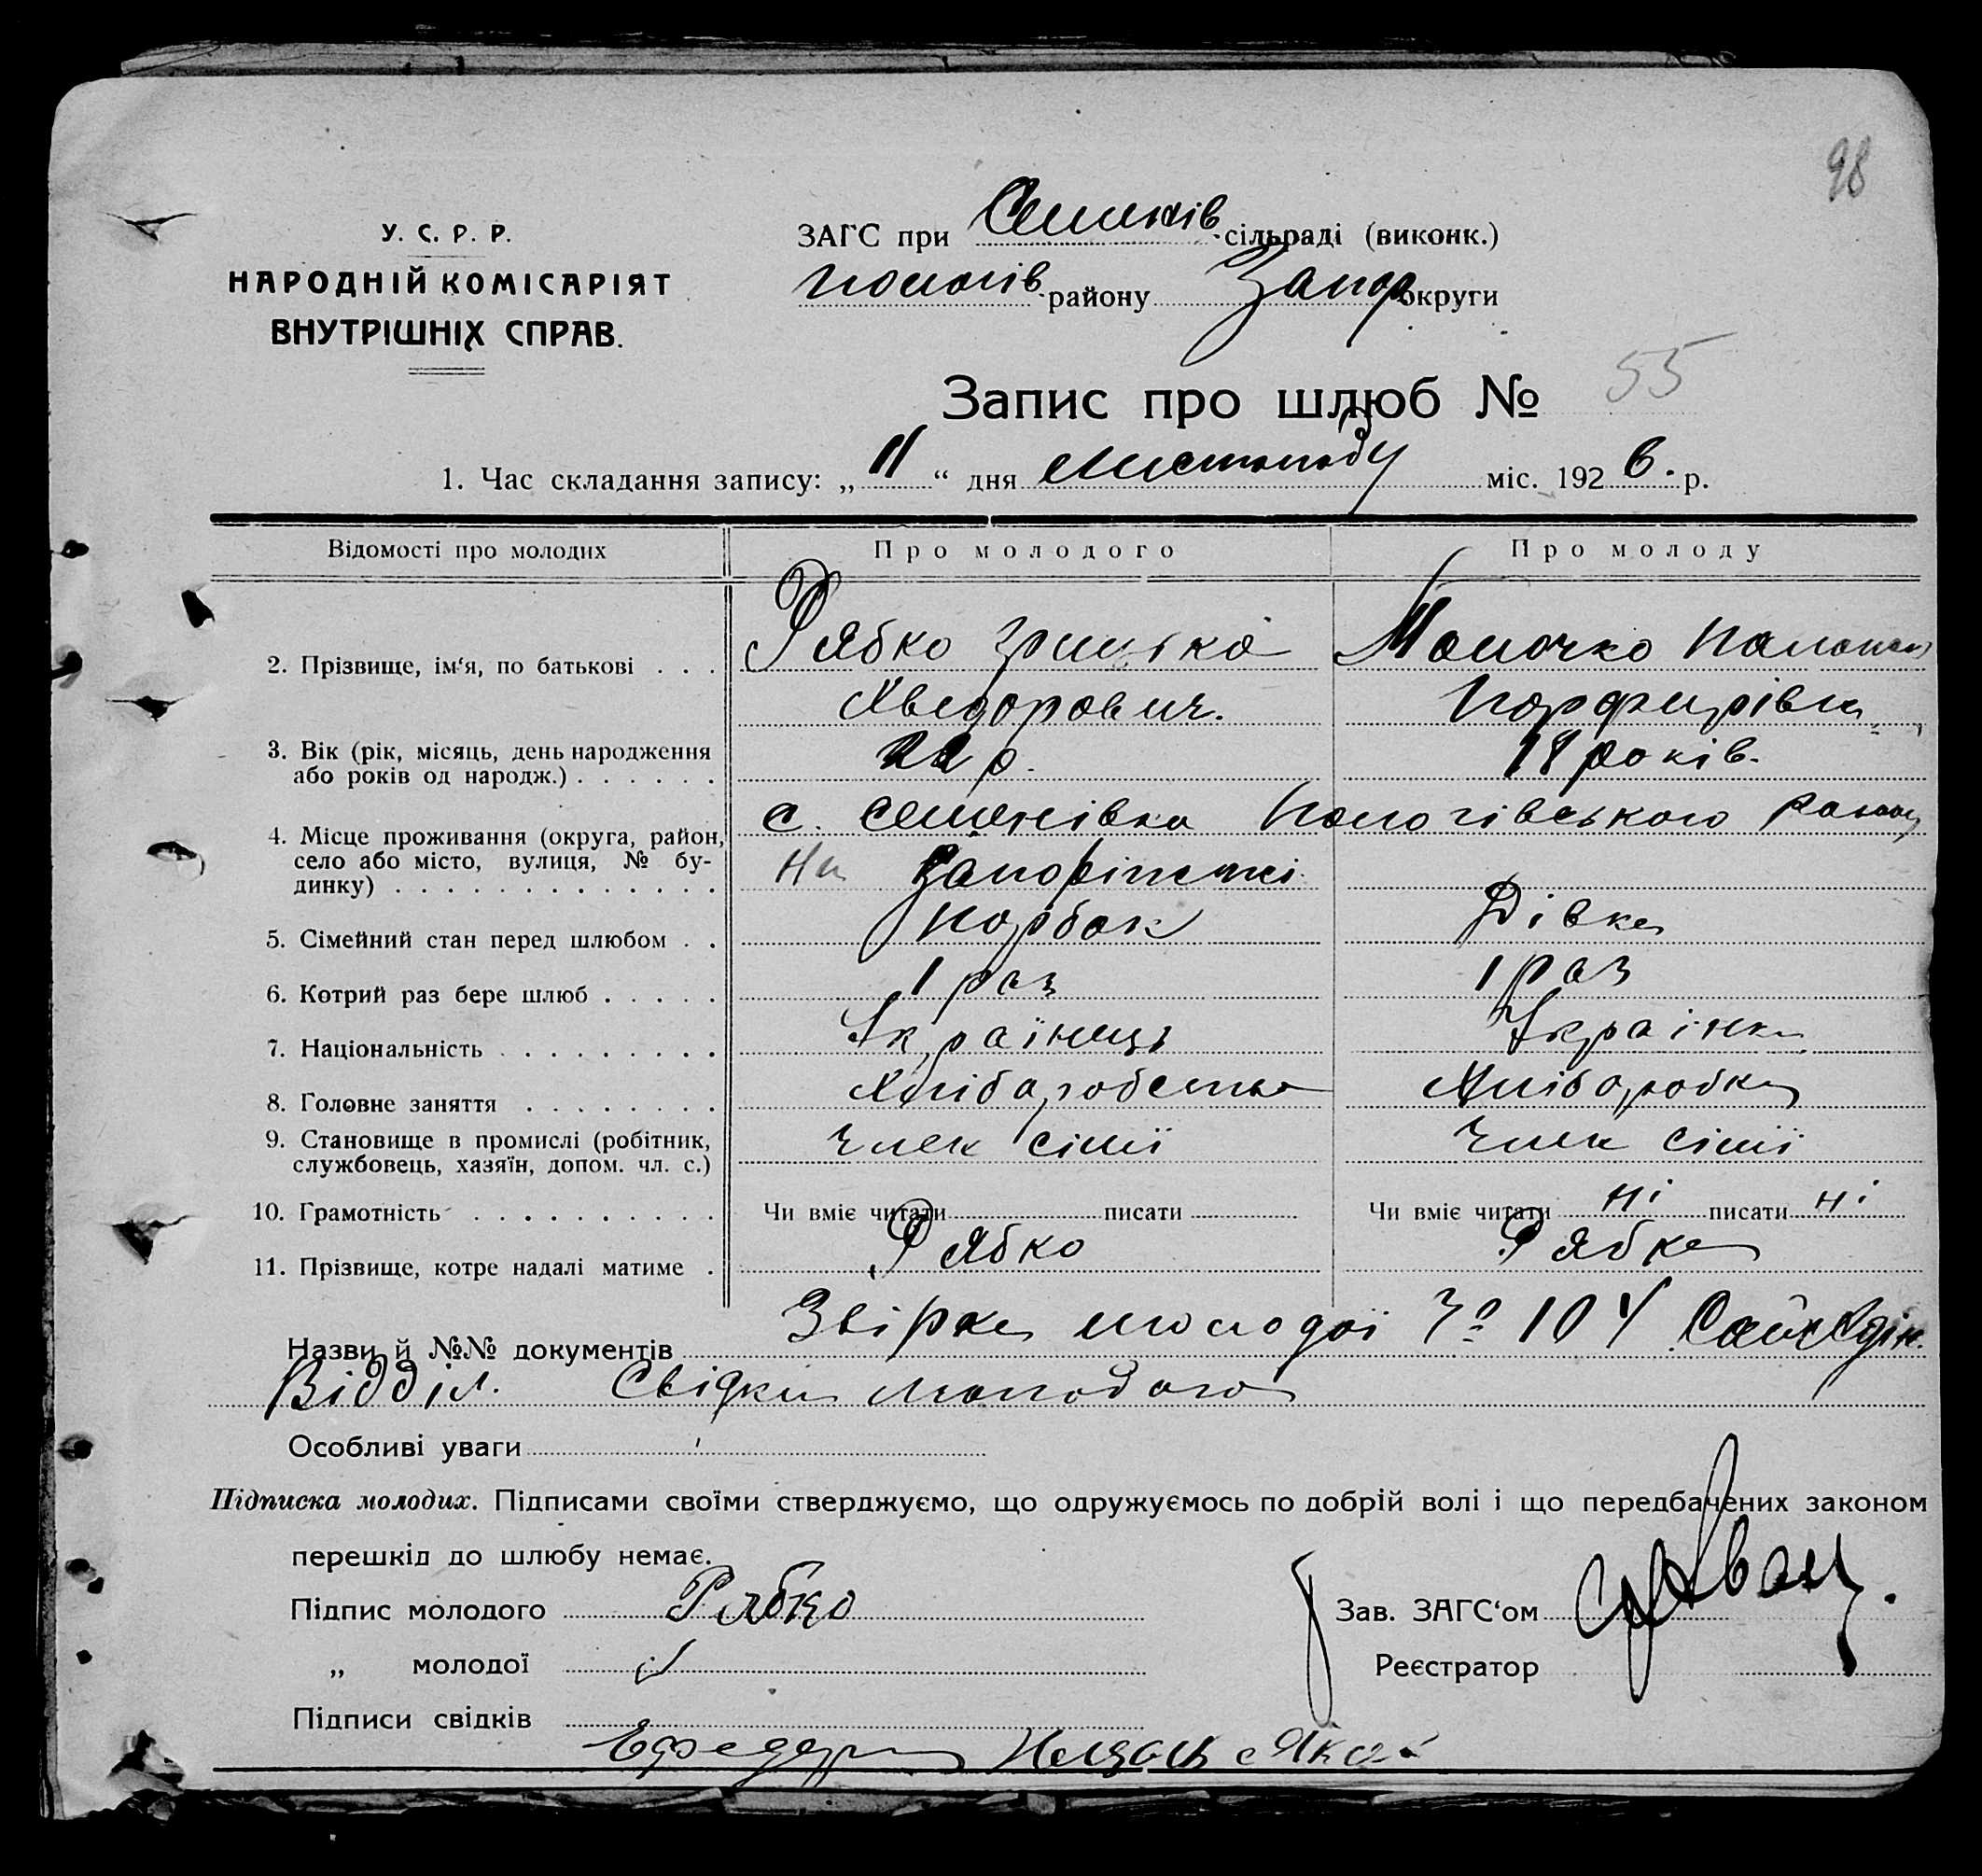 98
У. С. Р. Р.
НАРОДНІЙ КОМІСАРІЯТ
ВНУТРІШНІХ СПРАВ.
ЗАГС при Семенів. сільраді (виконк.)
Пологів. району Запор округи
Запис про шлюб № 55
1. Час складання запису: „ 11 “ дня листопаду міс. 1926. р.
Відомості про молодих Про молодого Про молоду
2. Прізвище, ім‘я, по батькові . . . Рябко Грицько Молочко
Хведорович. Порфирівна
3. Вік (рік, місяць, день народження
або років од народж.) . . . . . . 22 р. 18 років.
4. Місце проживання (округа, район, с. Семенівка Пологівського району
село або місто, вулиця, № бу-
динку) . . . . . . . . . . . . . На Запоріжжі
5. Сімейний стан перед шлюбом . . Парбок Дівка
6. Котрий раз бере шлюб . . . . . 1 раз 1 раз
7. Національність . . . . . . . . . Українець Українка
8. Головне заняття . . . . . . . . Хліборобство Хліборобка
9. Становище в промислі (робітник, Член сімї Член сімї
службовець, хазяїн, допом. чл. с.)
10. Грамотність . . . . . . . . . . Чи вміє читати писати Чи вміє читати ні писати ні
11. Прізвище, котре надалі матиме . Рябко Рябко
Назви й №№ документів молодої 104
Відділ. Свідки молодого
Особливі уваги
Підписка молодих. Підписами своїми стверджуємо, що одружуємось по добрій волі і що передбачених законом
перешкід до шлюбу немає.
Підпис молодого Рябко Зав. ЗАГС‘ом
„ молодої Реєстратор
Підписи свідків